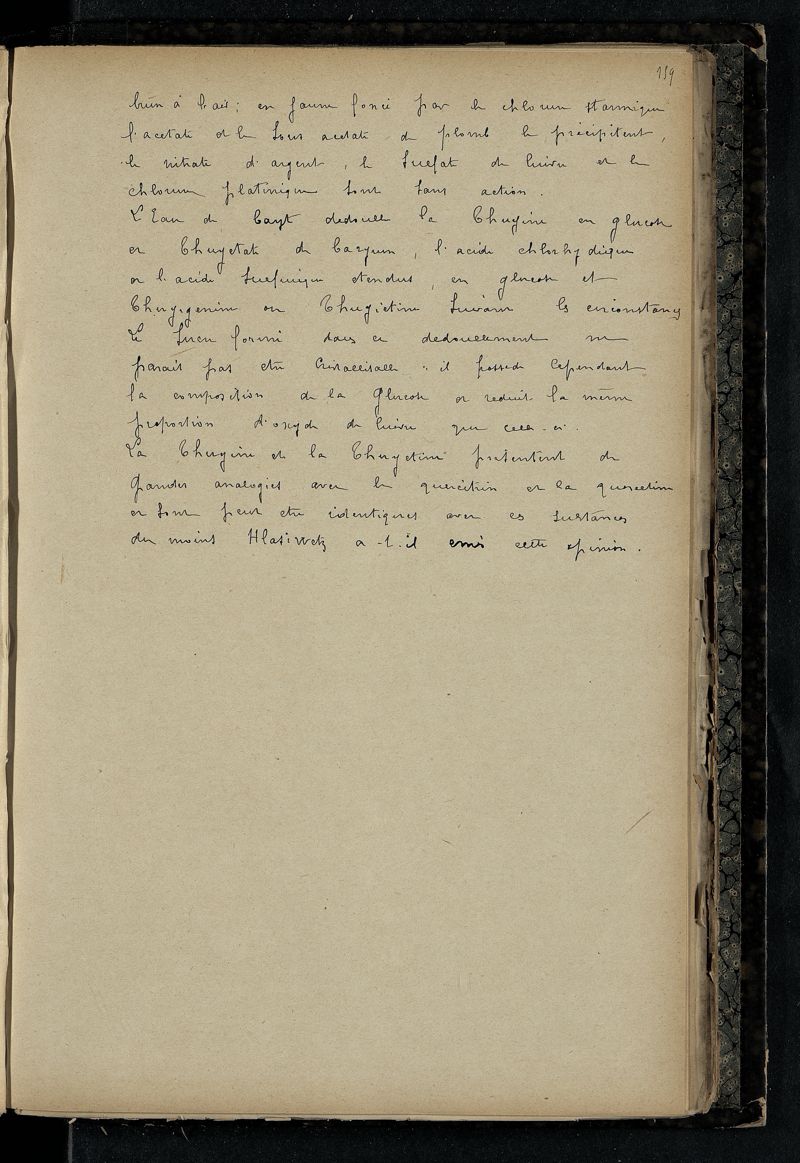 159
brun à l'air ; en jaune foncé par le chlorure stannique
l'acetate et le sous acetate de plomb le précipitent,
le nitrate d'argent, le sulfate de cuivre et le
chlorure platinique sont sans action.
L'Eau de Baryte dedouble la Thuyine en glucose
et Thuyetate de Baryum, l'acide chlorhydrique
ou l'acide sulfurique etendus, en glucose et
Thuyigenine ou Thuyietine suivant les circonstances
Le sucre formé dans ce dedoublement ne
parait pas etre Cristallisable : il possede cependant
la composition de la glucose et reduit la même
proportion d'oxyde de cuivre que celle-ci.
La Thuyine et la Thuyetine présentent de
grandes analogies avec le quercitrin et la quercetine
et sont peut etre identiques avec ces substances
du moins Hlasiwetz a-t-il emis cette opinion.